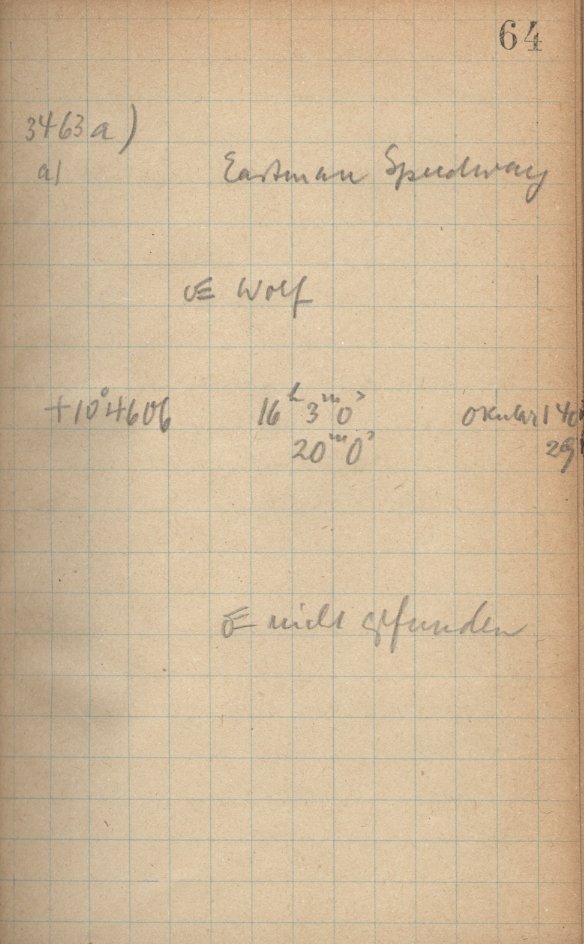 64
3463a)
a)
Eastman Speedway
☄ Wolf
+10°4606 16ʰ3ᵐ0ˢ Okular 140
20ᵐ0ˢ 29
☄ nicht gefunden